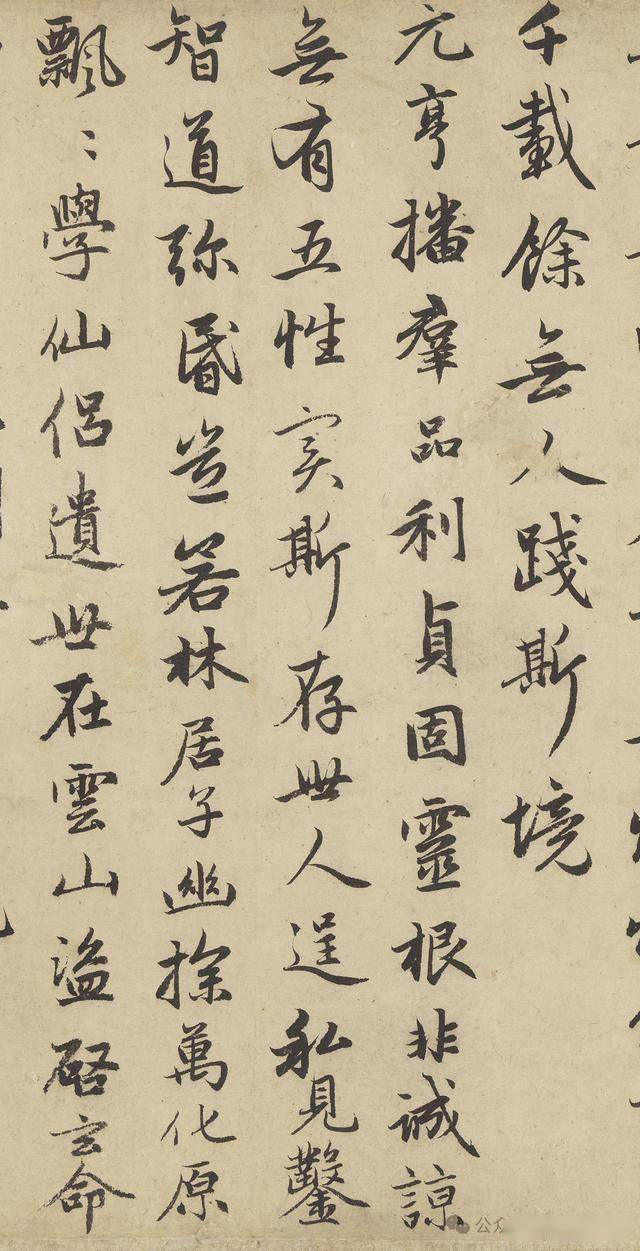 千載餘無人踐斯境
元亨播羣品利貞固靈根非誠諒
無有五性实斯存世人逞私見鑿
智道弥昬豈若林居子幽探萬化原
飄〻學仙侶遺世在雲山盜啓玄命
公众